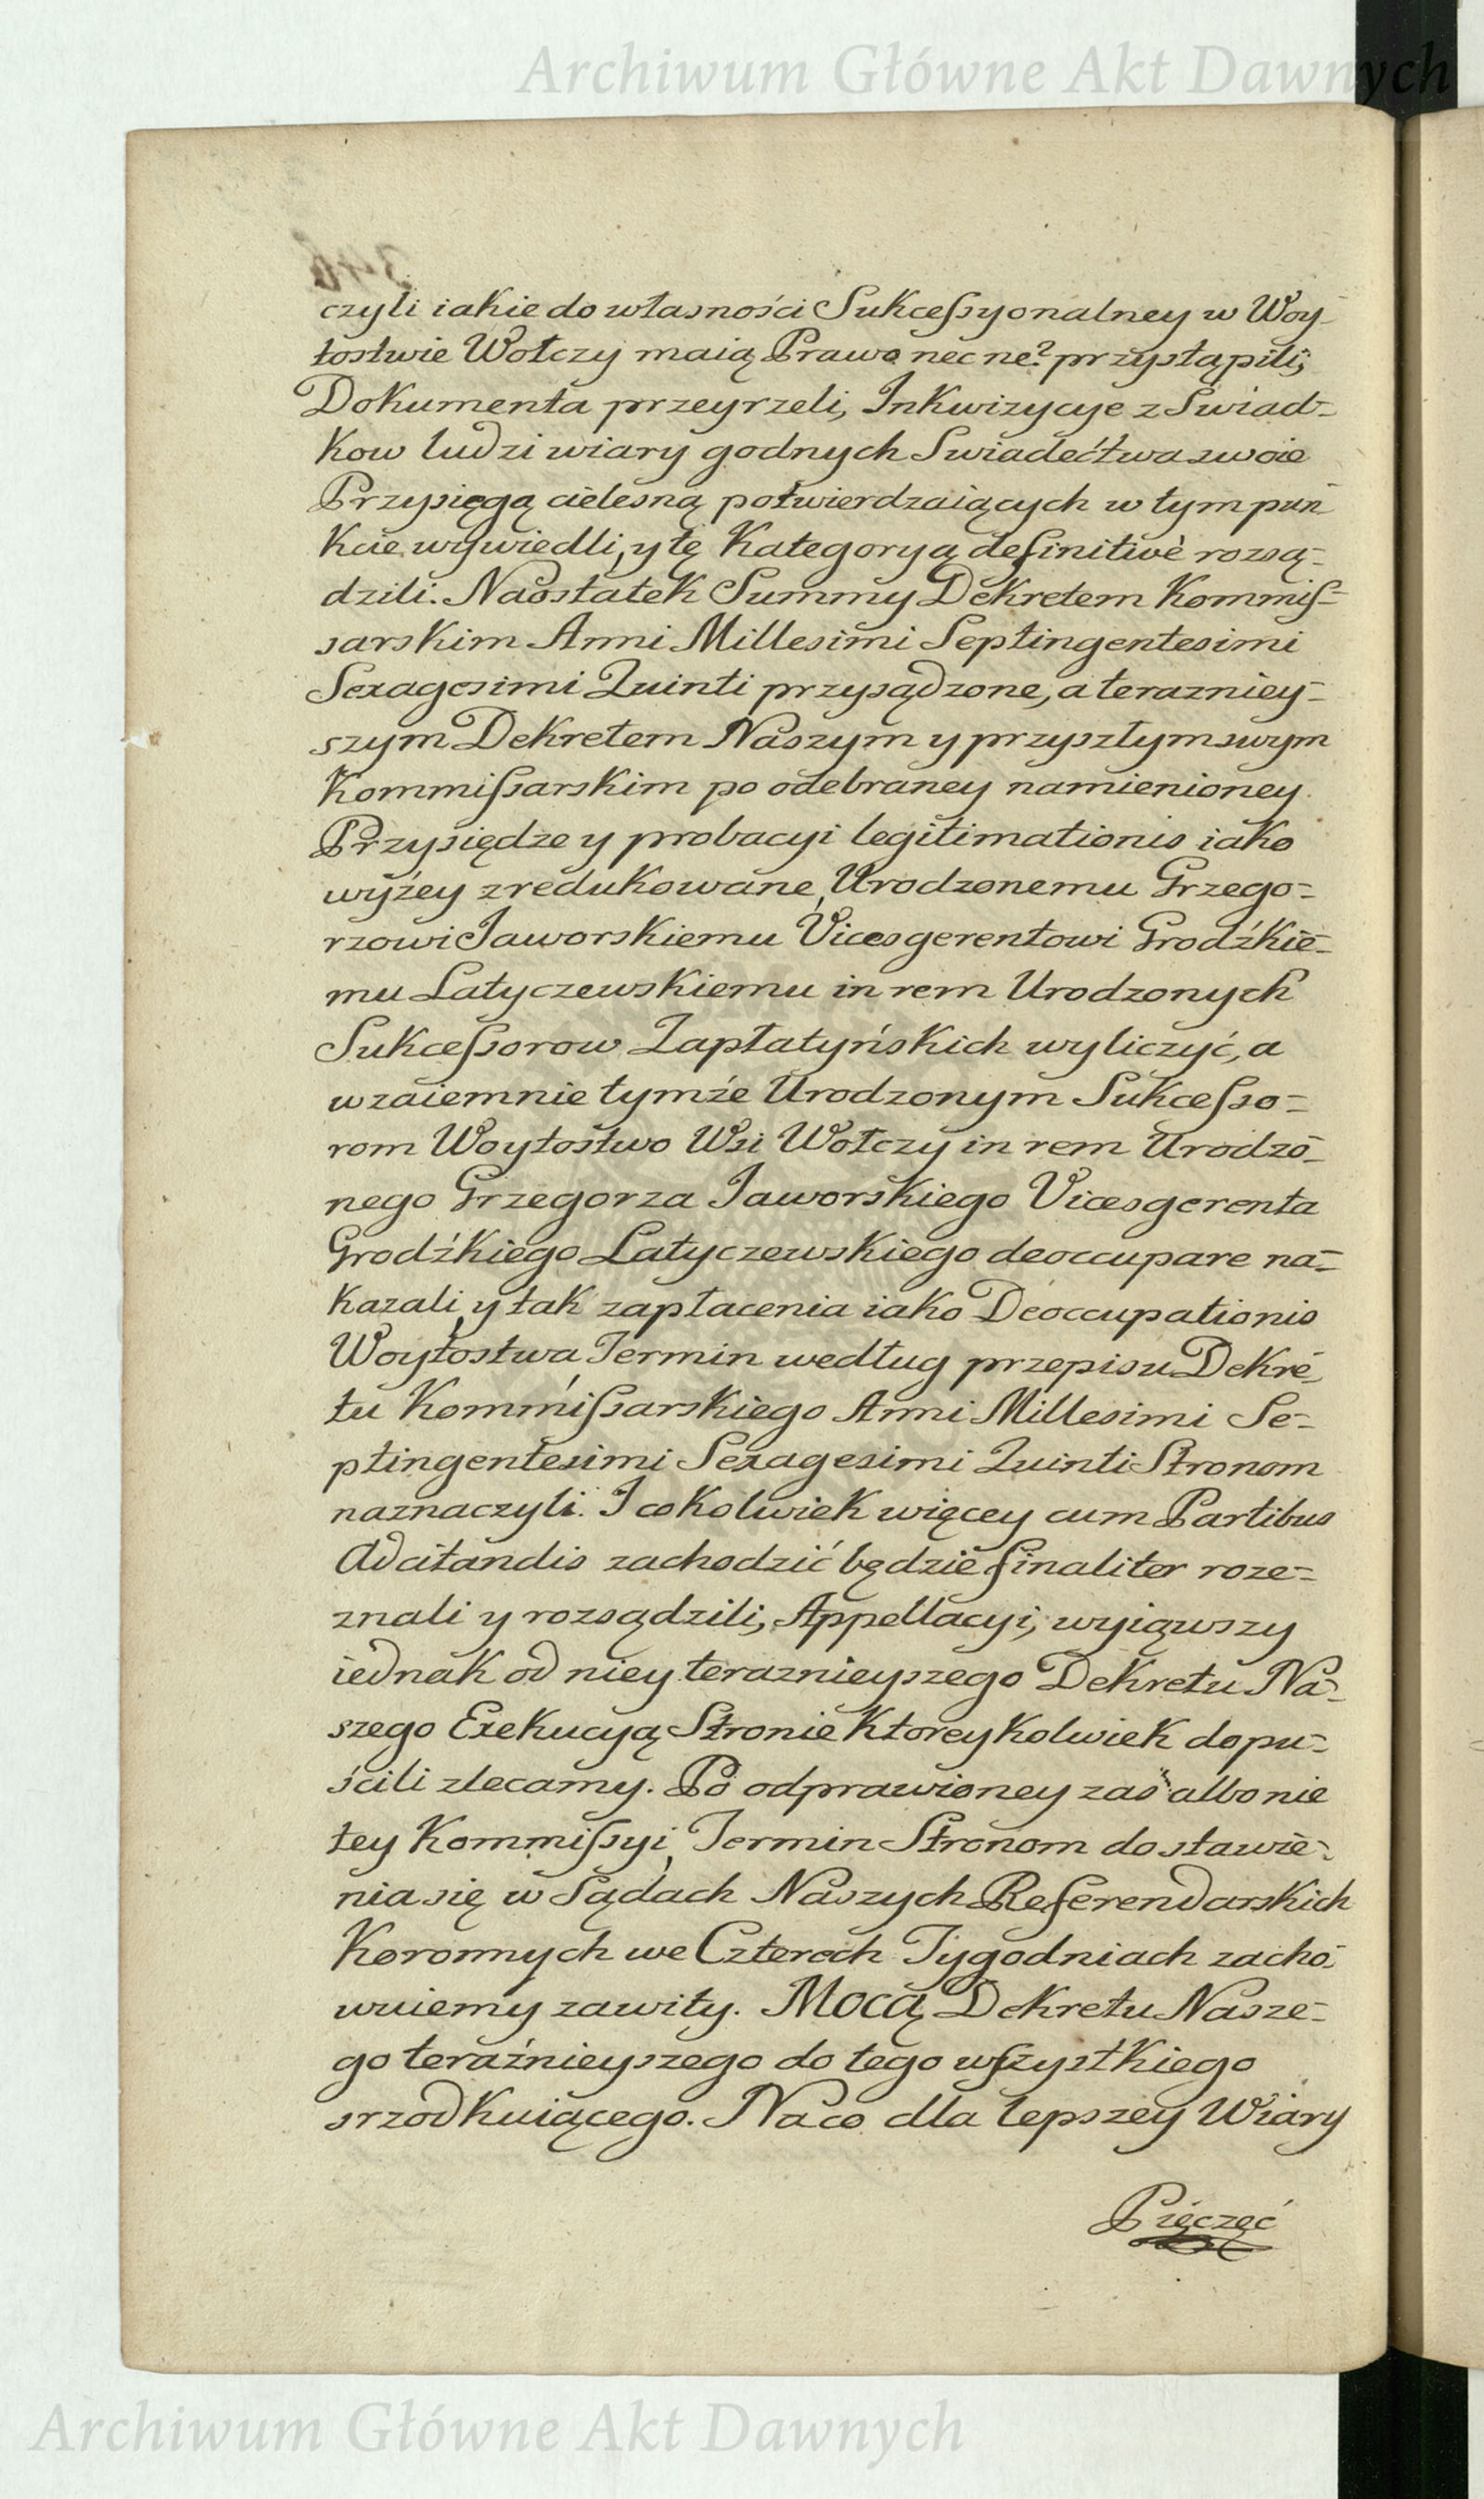 Archiwum Główne Akt Dawnych
czyli iakie do własności Sukceſsyonalney w Woy-
tostwie Wołczy maią Prawo nec ne? przystąpili;
Dokumenta przeyrzeli, Inkwizycye z Swiad-
kow ludzi wiary godnych Swiadectwa swoie
Przysięgą cielesną potwierdzaiących w tym pun-
kcie wywiedli, y tę Kategoryą definitivè rozsą-
dzili. Naostatek Summy Dekretem Kommiſ-
sarskim Anni Millesimi Septingentesimi
Sexagesimi Quinti przysądzone, a terazniey-
szym Dekretem Naszym y przyszłym swym
Kommiſsarskim po odebraney namienioney
Przysiędze y probacyi legitimationis iako
wyżey zredukowane, Urodzonemu Grzego-
rzowi Jaworskiemu Vicesgerentowi Grodźkie-
mu Latyczewskiemu in rem Urodzonych
Sukceſsorow Zapłatyńskich wyliczyć, a
wzaiemnie tymże Urodzonym Sukceſso-
rom Woytostwo Wsi Wołczy in rem Urodzo-
nego Grzegorza Jaworskiego Vicesgerenta
Grodźkiego Latyczewskiego deoccupare na-
kazali, y tak zapłacenia iako Deoccupationis
Woytostwa Termin według przepisu Dekre-
tu Kommiſsarskiego Anni Millesimi Se-
ptingentesimi Sexagesimi Quinti Stronom
naznaczyli. I cokolwiek więcey cum Partibus
Adcitandis zachodzić będzie finaliter roze-
znali y rozsądzili, Appellacyi, wyiąwszy
iednak od niey teraznieyszego Dekretu Na-
szego Exekucyą Stronie ktoreykolwiek dopu-
ścili zlecamy. Po odprawioney zaś albo nie
tey Kommiſsyi, Termin Stronom do stawie-
nia się w Sądach Naszych Referendarskich
Koronnych we Czterech Tygodniach zacho-
wuiemy zawity. Mocą Dekretu Nasze-
go teraźnieyszego do tego wſzystkiego
srzodkuiącego. Na co dla lepszey Wiary
Pięczęć
Archiwum Główne Akt Dawnych